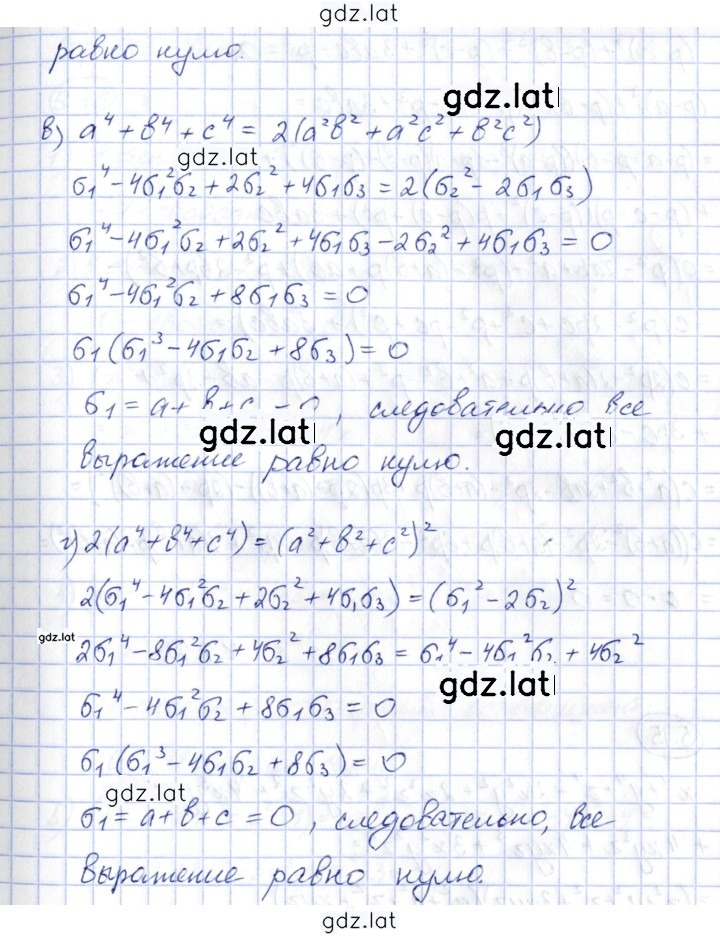 gdz.lat
равно нулю.
gdz.lat
в) a⁴ + b⁴ + c⁴ = 2(a²b² + a²c² + b²c²)
gdz.lat
σ₁⁴ - 4σ₁²σ₂ + 2σ₂² + 4σ₁σ₃ = 2(σ₂² - 2σ₁σ₃)
σ₁⁴ - 4σ₁²σ₂ + 2σ₂² + 4σ₁σ₃ - 2σ₂² + 4σ₁σ₃ = 0
σ₁⁴ - 4σ₁²σ₂ + 8σ₁σ₃ = 0
σ₁(σ₁³ - 4σ₁σ₂ + 8σ₃) = 0
σ₁ = a + b + c = 0, следовательно все
gdz.lat gdz.lat
выражение равно нулю.
г) 2(a⁴ + b⁴ + c⁴) = (a² + b² + c²)²
2(σ₁⁴ - 4σ₁²σ₂ + 2σ₂² + 4σ₁σ₃) = (σ₁² - 2σ₂)²
gdz.lat
2σ₁⁴ - 8σ₁²σ₂ + 4σ₂² + 8σ₁σ₃ = σ₁⁴ - 4σ₁²σ₂ + 4σ₂²
gdz.lat
σ₁⁴ - 4σ₁²σ₂ + 8σ₁σ₃ = 0
σ₁(σ₁³ - 4σ₁σ₂ + 8σ₃) = 0
gdz.lat
σ₁ = a + b + c = 0, следовательно, все
выражение равно нулю.
gdz.lat